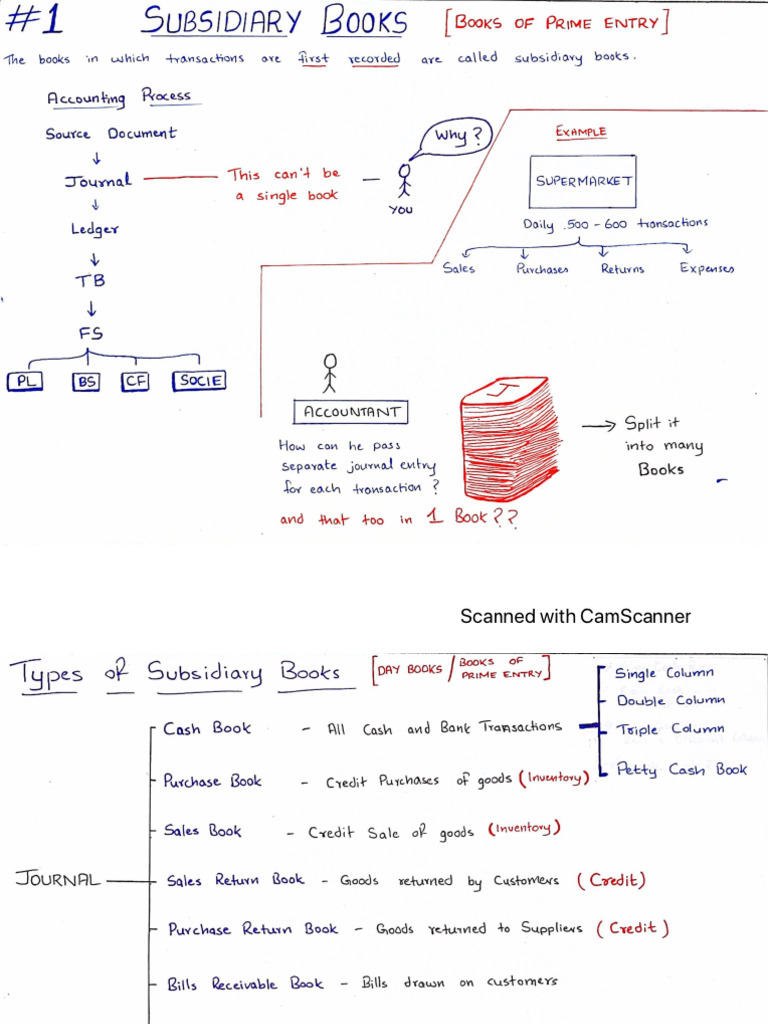 #1 SUBSIDIARY BOOKS [BOOKS OF PRIME ENTRY]
The books in which transactions are first recorded are called subsidiary books.
Accounting Process
Source Document
↓
Journal
This can't be
a single book
Why?
YOU
↓
Ledger
↓
TB
↓
FS
PL BS CF SOCIE
EXAMPLE
SUPERMARKET
Daily 500 - 600 transactions
Sales Purchases Returns Expenses
ACCOUNTANT
How can he pass
separate journal entry
for each transaction?
and that too in 1 Book??
J
→ Split it
into many
Books
Scanned with CamScanner
Types of Subsidiary Books [DAY BOOKS / BOOKS OF
PRIME ENTRY]
JOURNAL
Cash Book - All Cash and Bank Transactions
Single Column
Double Column
Triple Column
Petty Cash Book
Purchase Book - Credit Purchases of goods (Inventory)
Sales Book - Credit Sale of goods (Inventory)
Sales Return Book - Goods returned by Customers (Credit)
Purchase Return Book - Goods returned to Suppliers (Credit)
Bills Receivable Book - Bills drawn on customers